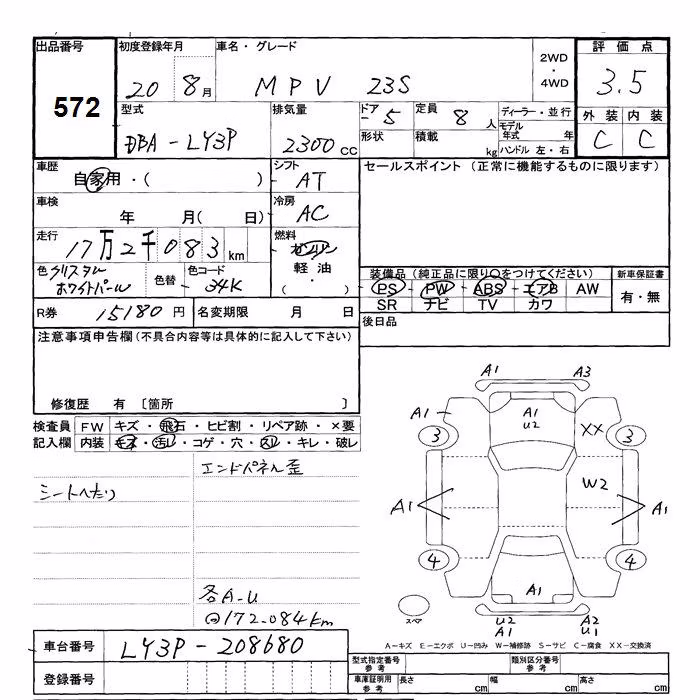 出品番号 初度登録年月 車名・グレード 2WD・4WD 評価点
572 20 8月 MPV 23S 3.5
型式 排気量 ドア 5 定員 8人 ディーラー・並行 外装 内装
DBA-LY3P 2300cc 形状 積載 kg モデル年式 年 C C
ハンドル 左・右
車歴 自家用・( ) シフト AT セールスポイント (正常に機能するものに限ります)
車検 年 月( 日) 冷房 AC
走行 17万2千083km 燃料 ガソリン
軽油・( )
色 クリスタルホワイトパール 色替 色コード 34K
装備品 (純正品に限り○をつけてください) 新車保証書
PS PW ABS エアB AW 有・無
SR ナビ TV カワ
R券 15180円 名変期限 月 日 後日品
注意事項申告欄(不具合内容等は具体的に記入して下さい)
修復歴 有 〔箇所 〕
検査員 FW キズ・飛石・ヒビ割・リペア跡・×要
記入欄 内装 キズ・汚レ・コゲ・穴・スレ・キレ・破レ
エンドパネル歪
シートへたり
各A-U
172.084km
A1 A3
A1 A1 U2 XX
3 3
W2
A1 A1
4 4
A1
スペア U2 A1 A2 U1
A-キズ E-エクボ U-凹み W-補修跡 S-サビ C-腐食 XX-交換済
車台番号 LY3P-208680
型式指定番号 参考 類別区分番号 参考
登録番号
車庫証明用 参考 長さ cm 幅 cm 高さ cm